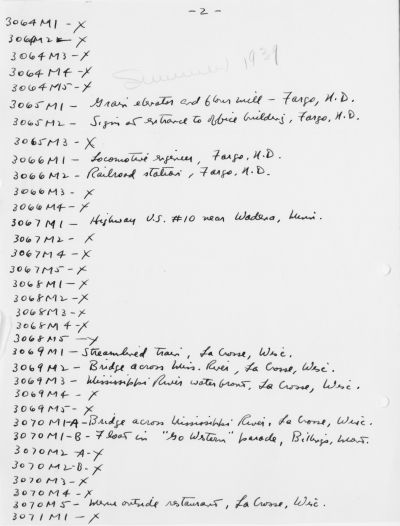 - 2 -
3064M1 - X
3064M2 - X
3064M3 - X
3064M4 - X
Summer 1939
3064M5 - X
3065M1 - Grain elevator and flour mill - Fargo, N.D.
3065M2 - Sign at entrance to office building, Fargo, N.D.
3065M3 - X
3066M1 - Locomotive engineer, Fargo, N.D.
3066M2 - Railroad station, Fargo, N.D.
3066M3 - X
3066M4 - X
3067M1 - Highway U.S. #10 near Wadena, Minn.
3067M2 - X
3067M4 - X
3067M5 - X
3068M1 - X
3068M2 - X
3068M3 - X
3068M4 - X
3068M5 - X
3069M1 - Streamlined train, La Crosse, Wisc.
3069M2 - Bridge across Miss. River, La Crosse, Wisc.
3069M3 - Mississippi River waterfront, La Crosse, Wisc.
3069M4 - X
3069M5 - X
3070M1-A - Bridge across Mississippi River, La Crosse, Wisc.
3070M1-B - Float in "Go Western" parade, Billings, Mont.
3070M2-A - X
3070M2-B - X
3070M3 - X
3070M4 - X
3070M5 - Menu outside restaurant, La Crosse, Wisc.
3071M1 - X